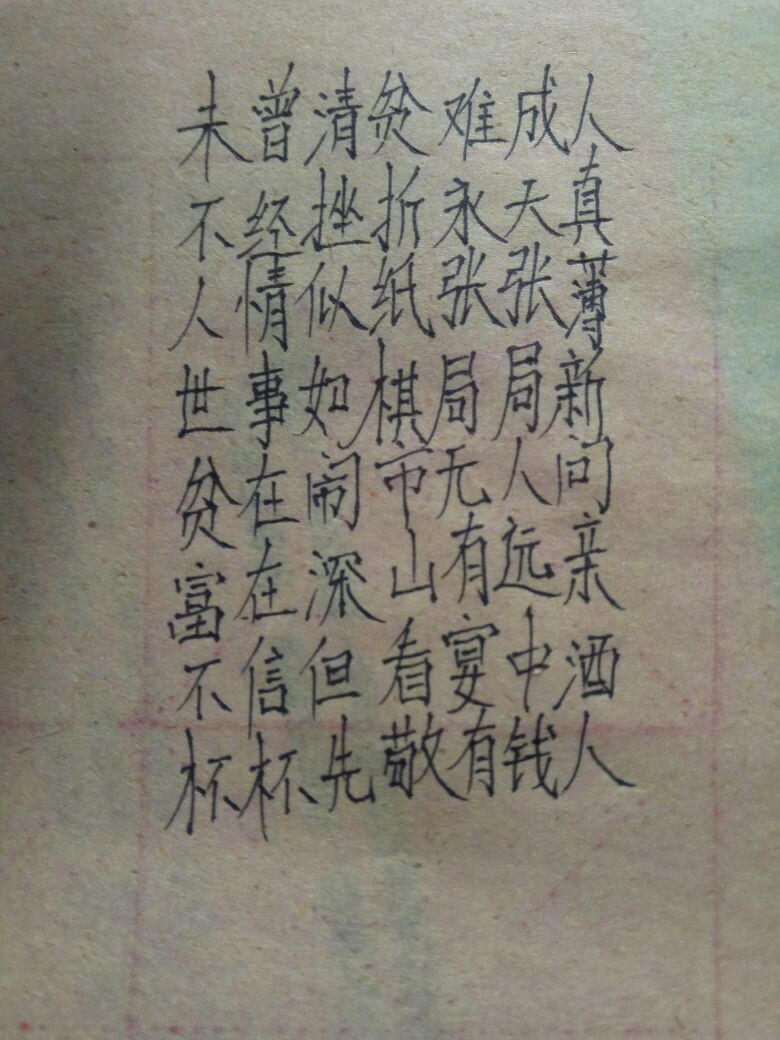 未曾清贫难成人
不经挫折永天真
人情似纸张张薄
世事如棋局局新
贫在闹市无人问
富在深山有远亲
不信但看宴中酒
杯杯先敬有钱人